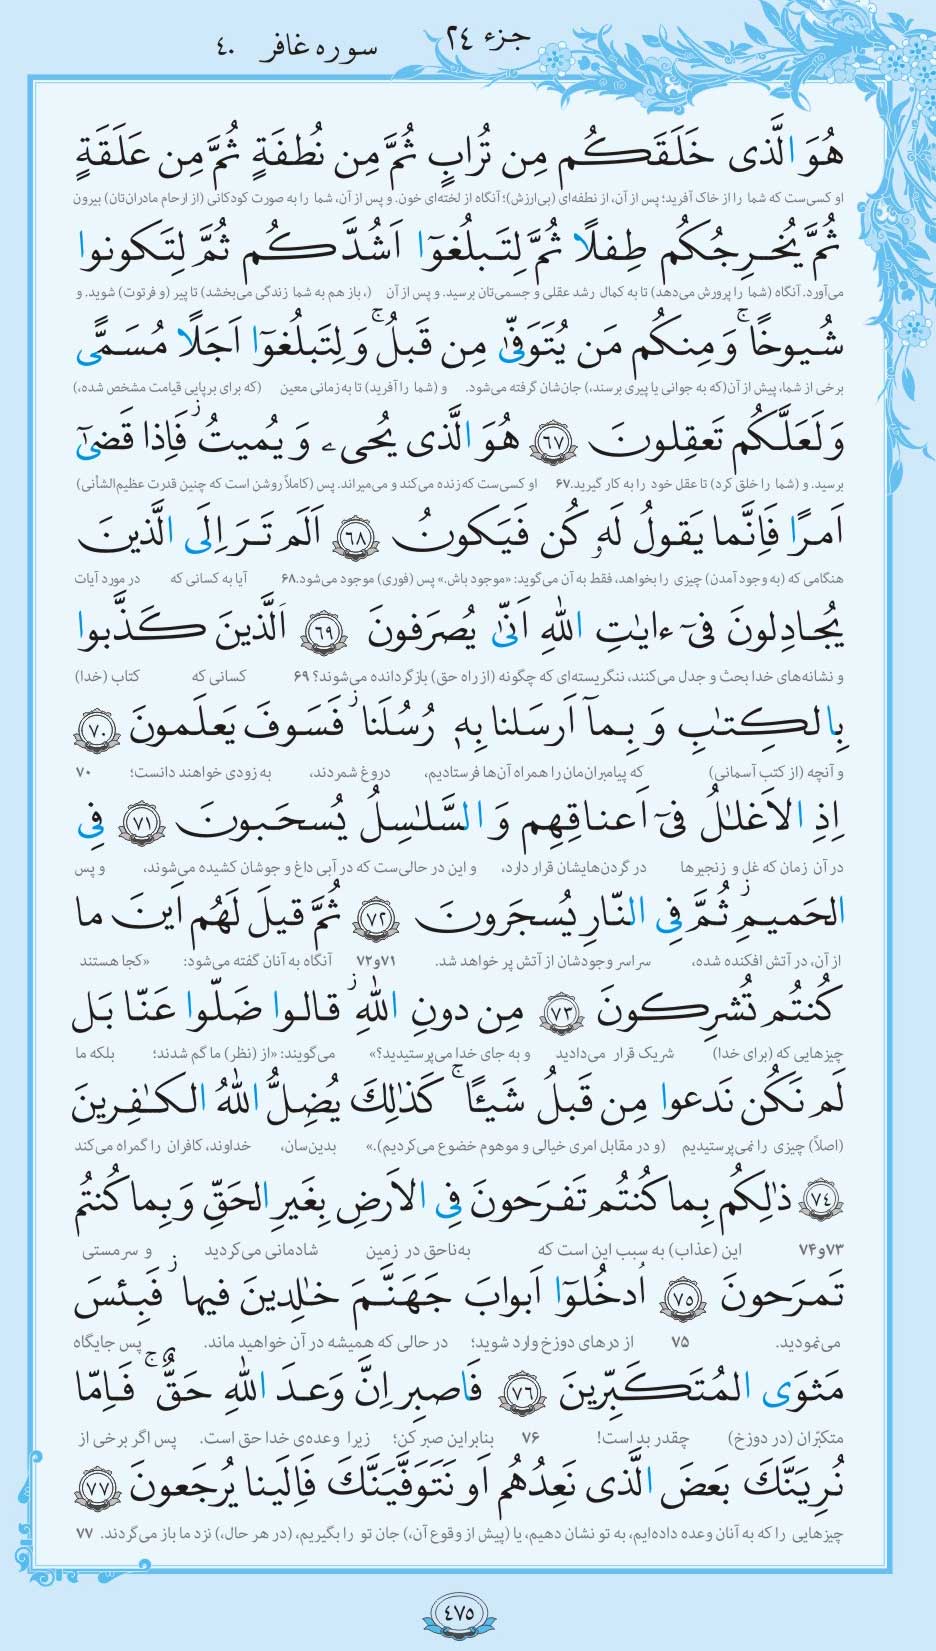 جزء ۲۴
سوره غافر ۴۰
هُوَ الَّذی خَلَقَکُم مِن تُرابٍ ثُمَّ مِن نُطفَةٍ ثُمَّ مِن عَلَقَةٍ
او کسی‌ست که شما را از خاک آفرید؛ پس از آن، از نطفه‌ای (بی‌ارزش)؛ آنگاه از لخته‌ای خون. و پس از آن، شما را به صورت کودکانی (از ارحام مادران‌تان) بیرون
ثُمَّ یُخرِجُکُم طِفلًا ثُمَّ لِتَبلُغوٓا اَشُدَّکُم ثُمَّ لِتَکونوا
می‌آورد. آنگاه (شما را پرورش می‌دهد) تا به کمال رشد عقلی و جسمی‌تان برسید. و پس از آن (، باز هم به شما زندگی می‌بخشد) تا پیر (و فرتوت) شوید. و
شُیوخًاۚ وَ مِنکُم مَن یُتَوَفّیٰ مِن قَبلُۚ وَ لِتَبلُغوٓا اَجَلًا مُسَمًّی
برخی از شما، پیش از آن(که به جوانی یا پیری برسند،) جان‌شان گرفته می‌شود. و (شما را آفرید) تا به زمانی معین (که برای برپایی قیامت مشخص شده،)
وَ لَعَلَّکُم تَعقِلونَ ﴿۶۷﴾ هُوَ الَّذی یُحیۦ وَ یُمیتُۖ فَاِذا قَضیٰٓ
برسید. و (شما را خلق کرد) تا عقل خود را به کار گیرید.۶۷ او کسی‌ست که زنده می‌کند و می‌میراند. پس (کاملاً روشن است که چنین قدرت عظیم‌الشأنی)
اَمرًا فَاِنَّما یَقولُ لَهٗ کُن فَیَکونُ ﴿۶۸﴾ اَلَم تَرَ اِلَی الَّذینَ
هنگامی که (به وجود آمدن) چیزی را بخواهد، فقط به آن می‌گوید: «موجود باش.» پس (فوری) موجود می‌شود.۶۸ آیا به کسانی که در مورد آیات
یُجادِلونَ فیٓ ءایٰتِ اللّٰهِ اَنّیٰ یُصرَفونَ ﴿۶۹﴾ اَلَّذینَ کَذَّبوا
و نشانه‌های خدا بحث و جدل می‌کنند، ننگریسته‌ای که چگونه (از راه حق) بازگردانده می‌شوند؟ ۶۹ کسانی که کتاب (خدا)
بِالکِتٰبِ وَ بِمآ اَرسَلنا بِهٖ رُسُلَناۖ فَسَوفَ یَعلَمونَ ﴿۷۰﴾
و آنچه (از کتب آسمانی) که پیامبران‌مان را همراه آن‌ها فرستادیم، دروغ شمردند، به زودی خواهند دانست؛ ۷۰
اِذِ الاَغلٰلُ فیٓ اَعناقِهِم وَ السَّلٰسِلُ یُسحَبونَ ﴿۷۱﴾ فِی
در آن زمان که غل و زنجیرها در گردن‌هایشان قرار دارد، و این در حالی‌ست که در آبی داغ و جوشان کشیده می‌شوند، و پس
الحَمیمِۖ ثُمَّ فِی النّارِ یُسجَرونَ ﴿۷۲﴾ ثُمَّ قیلَ لَهُم اَینَ ما
از آن، در آتش افکنده شده، سراسر وجودشان از آتش پر خواهد شد. ۷۱و۷۲ آنگاه به آنان گفته می‌شود: «کجا هستند
کُنتُم تُشرِکونَ ﴿۷۳﴾ مِن دونِ اللّٰهِۖ قالوا ضَلّوا عَنّا بَل
چیزهایی که (برای خدا) شریک قرار می‌دادید و به جای خدا می‌پرستیدید؟» می‌گویند: «از (نظر) ما گم شدند؛ بلکه ما
لَم نَکُن نَدعوا مِن قَبلُ شَیئًاۚ کَذٰلِکَ یُضِلُّ اللّٰهُ الکٰفِرینَ
(اصلاً) چیزی را نمی‌پرستیدیم (و در مقابل امری خیالی و موهوم خضوع می‌کردیم).» بدین‌سان، خداوند، کافران را گمراه می‌کند
﴿۷۴﴾ ذٰلِکُم بِما کُنتُم تَفرَحونَ فِی الاَرضِ بِغَیرِ الحَقِّ وَ بِما کُنتُم
۷۳و۷۴ این (عذاب) به سبب این است که به‌ناحق در زمین شادمانی می‌کردید و سرمستی
تَمرَحونَ ﴿۷۵﴾ اُدخُلوٓا اَبوابَ جَهَنَّمَ خٰلِدینَ فیهاۖ فَبِئسَ
می‌نمودید. ۷۵ از درهای دوزخ وارد شوید؛ در حالی که همیشه در آن خواهید ماند. پس جایگاه
مَثوَی المُتَکَبِّرینَ ﴿۷۶﴾ فَاصبِر اِنَّ وَعدَ اللّٰهِ حَقٌّۚ فَاِمّا
متکبّران (در دوزخ) چقدر بد است! ۷۶ بنابراین صبر کن؛ زیرا وعده‌ی خدا حق است. پس اگر برخی از
نُرِیَنَّکَ بَعضَ الَّذی نَعِدُهُم اَو نَتَوَفَّیَنَّکَ فَاِلَینا یُرجَعونَ ﴿۷۷﴾
چیزهایی را که به آنان وعده داده‌ایم، به تو نشان دهیم، یا (پیش از وقوع آن،) جان تو را بگیریم، (در هر حال،) نزد ما باز می‌گردند. ۷۷
۴۷۵